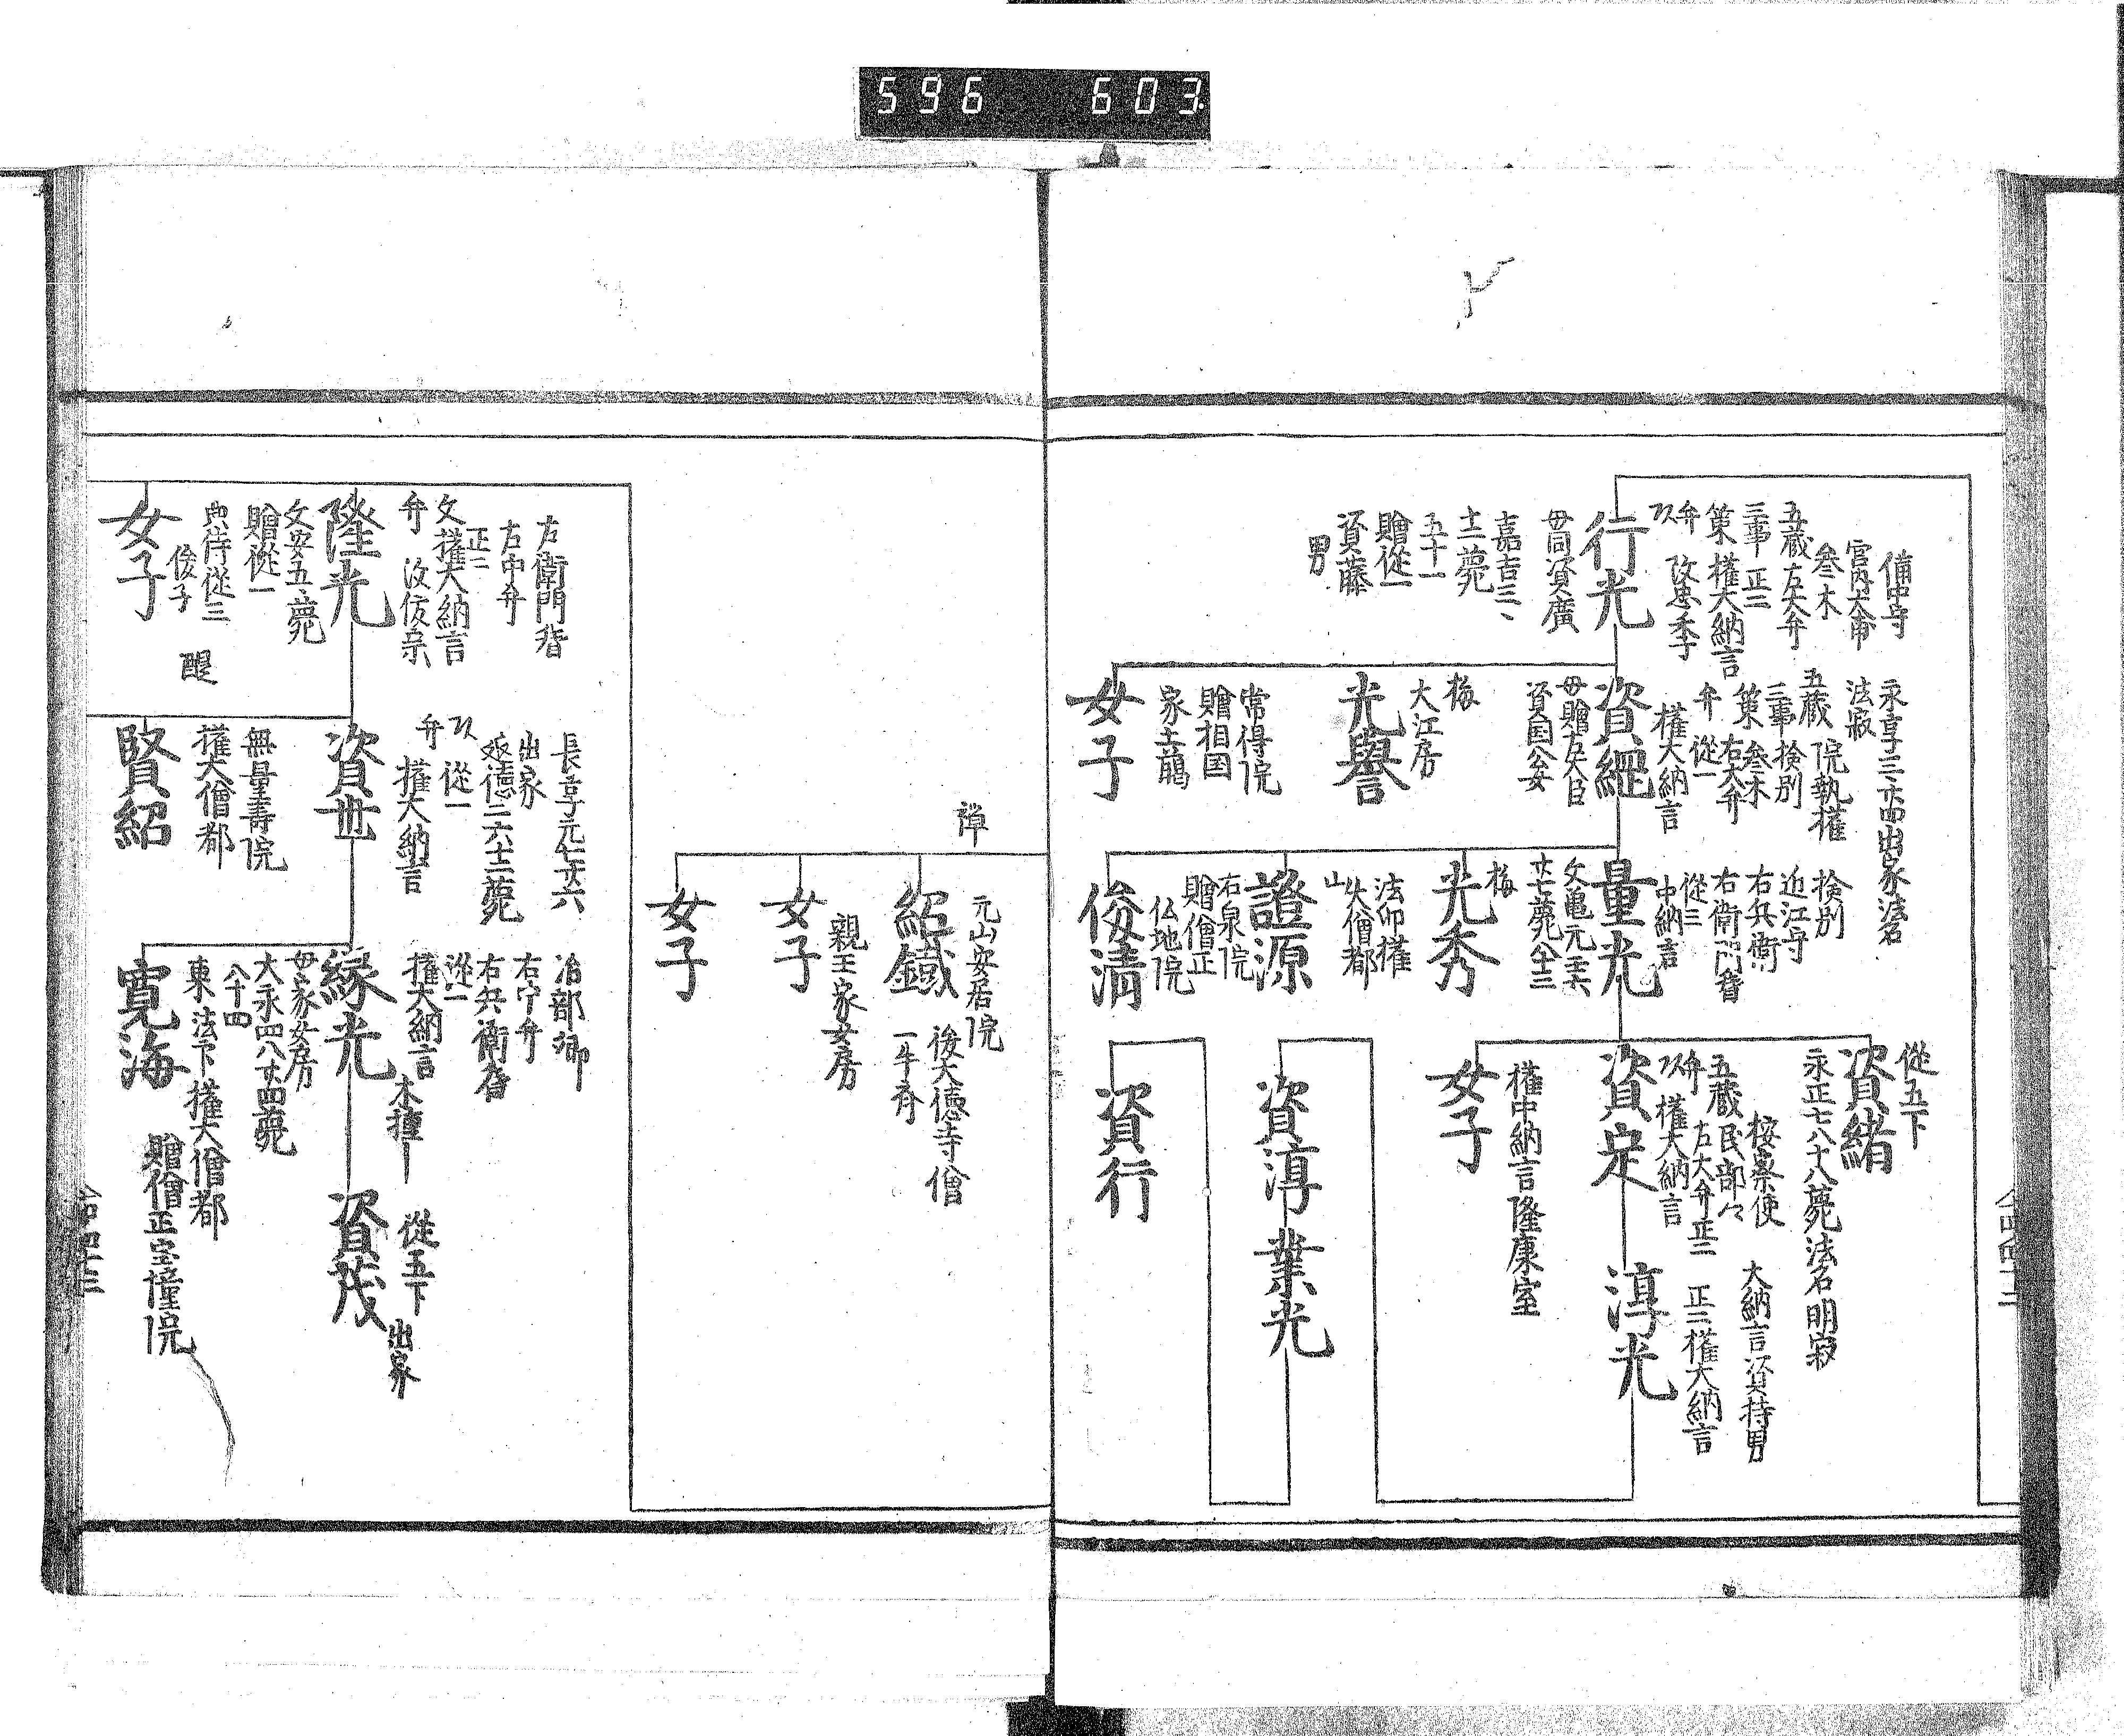 596 603
備中守
宮内大甫
叅木
五蔵 左大弁
三事 正二
策 權大納言
弁 改忠季
行光
母同資廣
嘉吉三、
十二薨
五十一
贈從一
資藤
男
永享三六廿四出家法名
法寂
五蔵 院執權
三事 検別
策 叅木
右大弁
弁 從一
權大納言
資綱
母贈左大臣
資国公女
梅
大江房
光譽
常得院
贈相国
家上﨟
女子
検別
近江守
右兵衛
右衛門督
從三
中納言
量光
文亀元
薨
梅
光秀
法印權
大僧都
山
證源
石泉院
贈僧正
仏地院
俊清
從五下
資緒
永正七八十八薨法名明寂
按察使
五蔵 民部々
弁 左大弁正二
權大納言
資定
大納言資持男
正二權大納言
淳光
權中納言隆康室
女子
資淳
業光
資行
障
元山安居院
後大徳寺僧
一牛斎
紹鐵
親王家女房
女子
女子
左衛門督
右中弁
正二
文 權大納言
弁 改俊宗
隆光
文安五、薨
贈從一
典侍從三
俊子
女子
醍
長享元
出家
延徳二六十二薨
從一
弁 權大納言
資世
無量壽院
權大僧都
賢紹
治部卿
右中弁
右兵衛督
從一
權大納言
縁光
母家女房
大永四八廿四薨
八十四
東、法下權大僧都
贈僧正宝憧院
寛海
從五下
出家
資茂